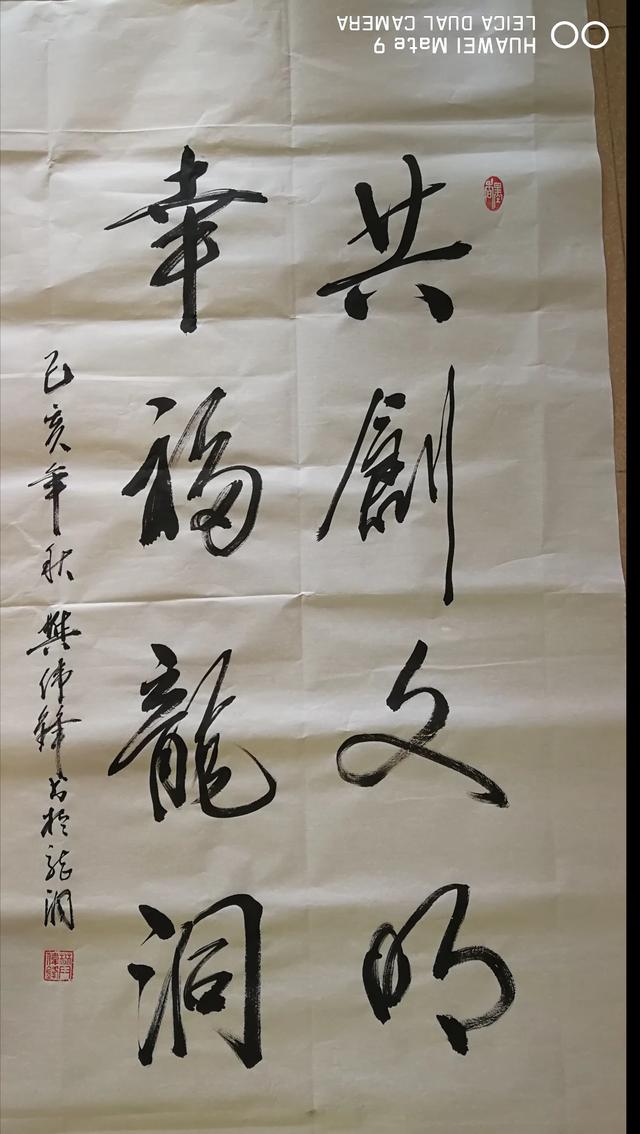 共創文明
幸福龍洞
己亥年秋 樊偉鋒书於龍洞
HUAWEI Mate 9
LEICA DUAL CAMERA